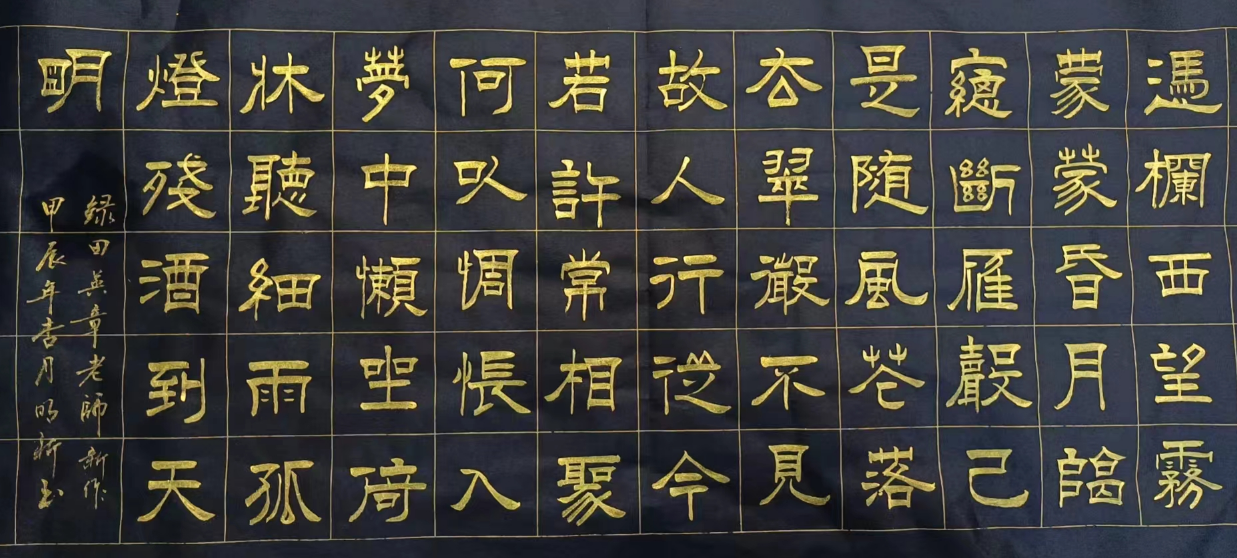 憑欄西望霧
蒙蒙昏月臨
窻斷雁聲已
是随風花落
去翠嚴不見
故人行從今
若許常相聚
何以惆悵入
夢中懶坐倚
牀聽細雨孤
燈殘酒到天
明
録田英章老師新作
甲辰年杏月明书